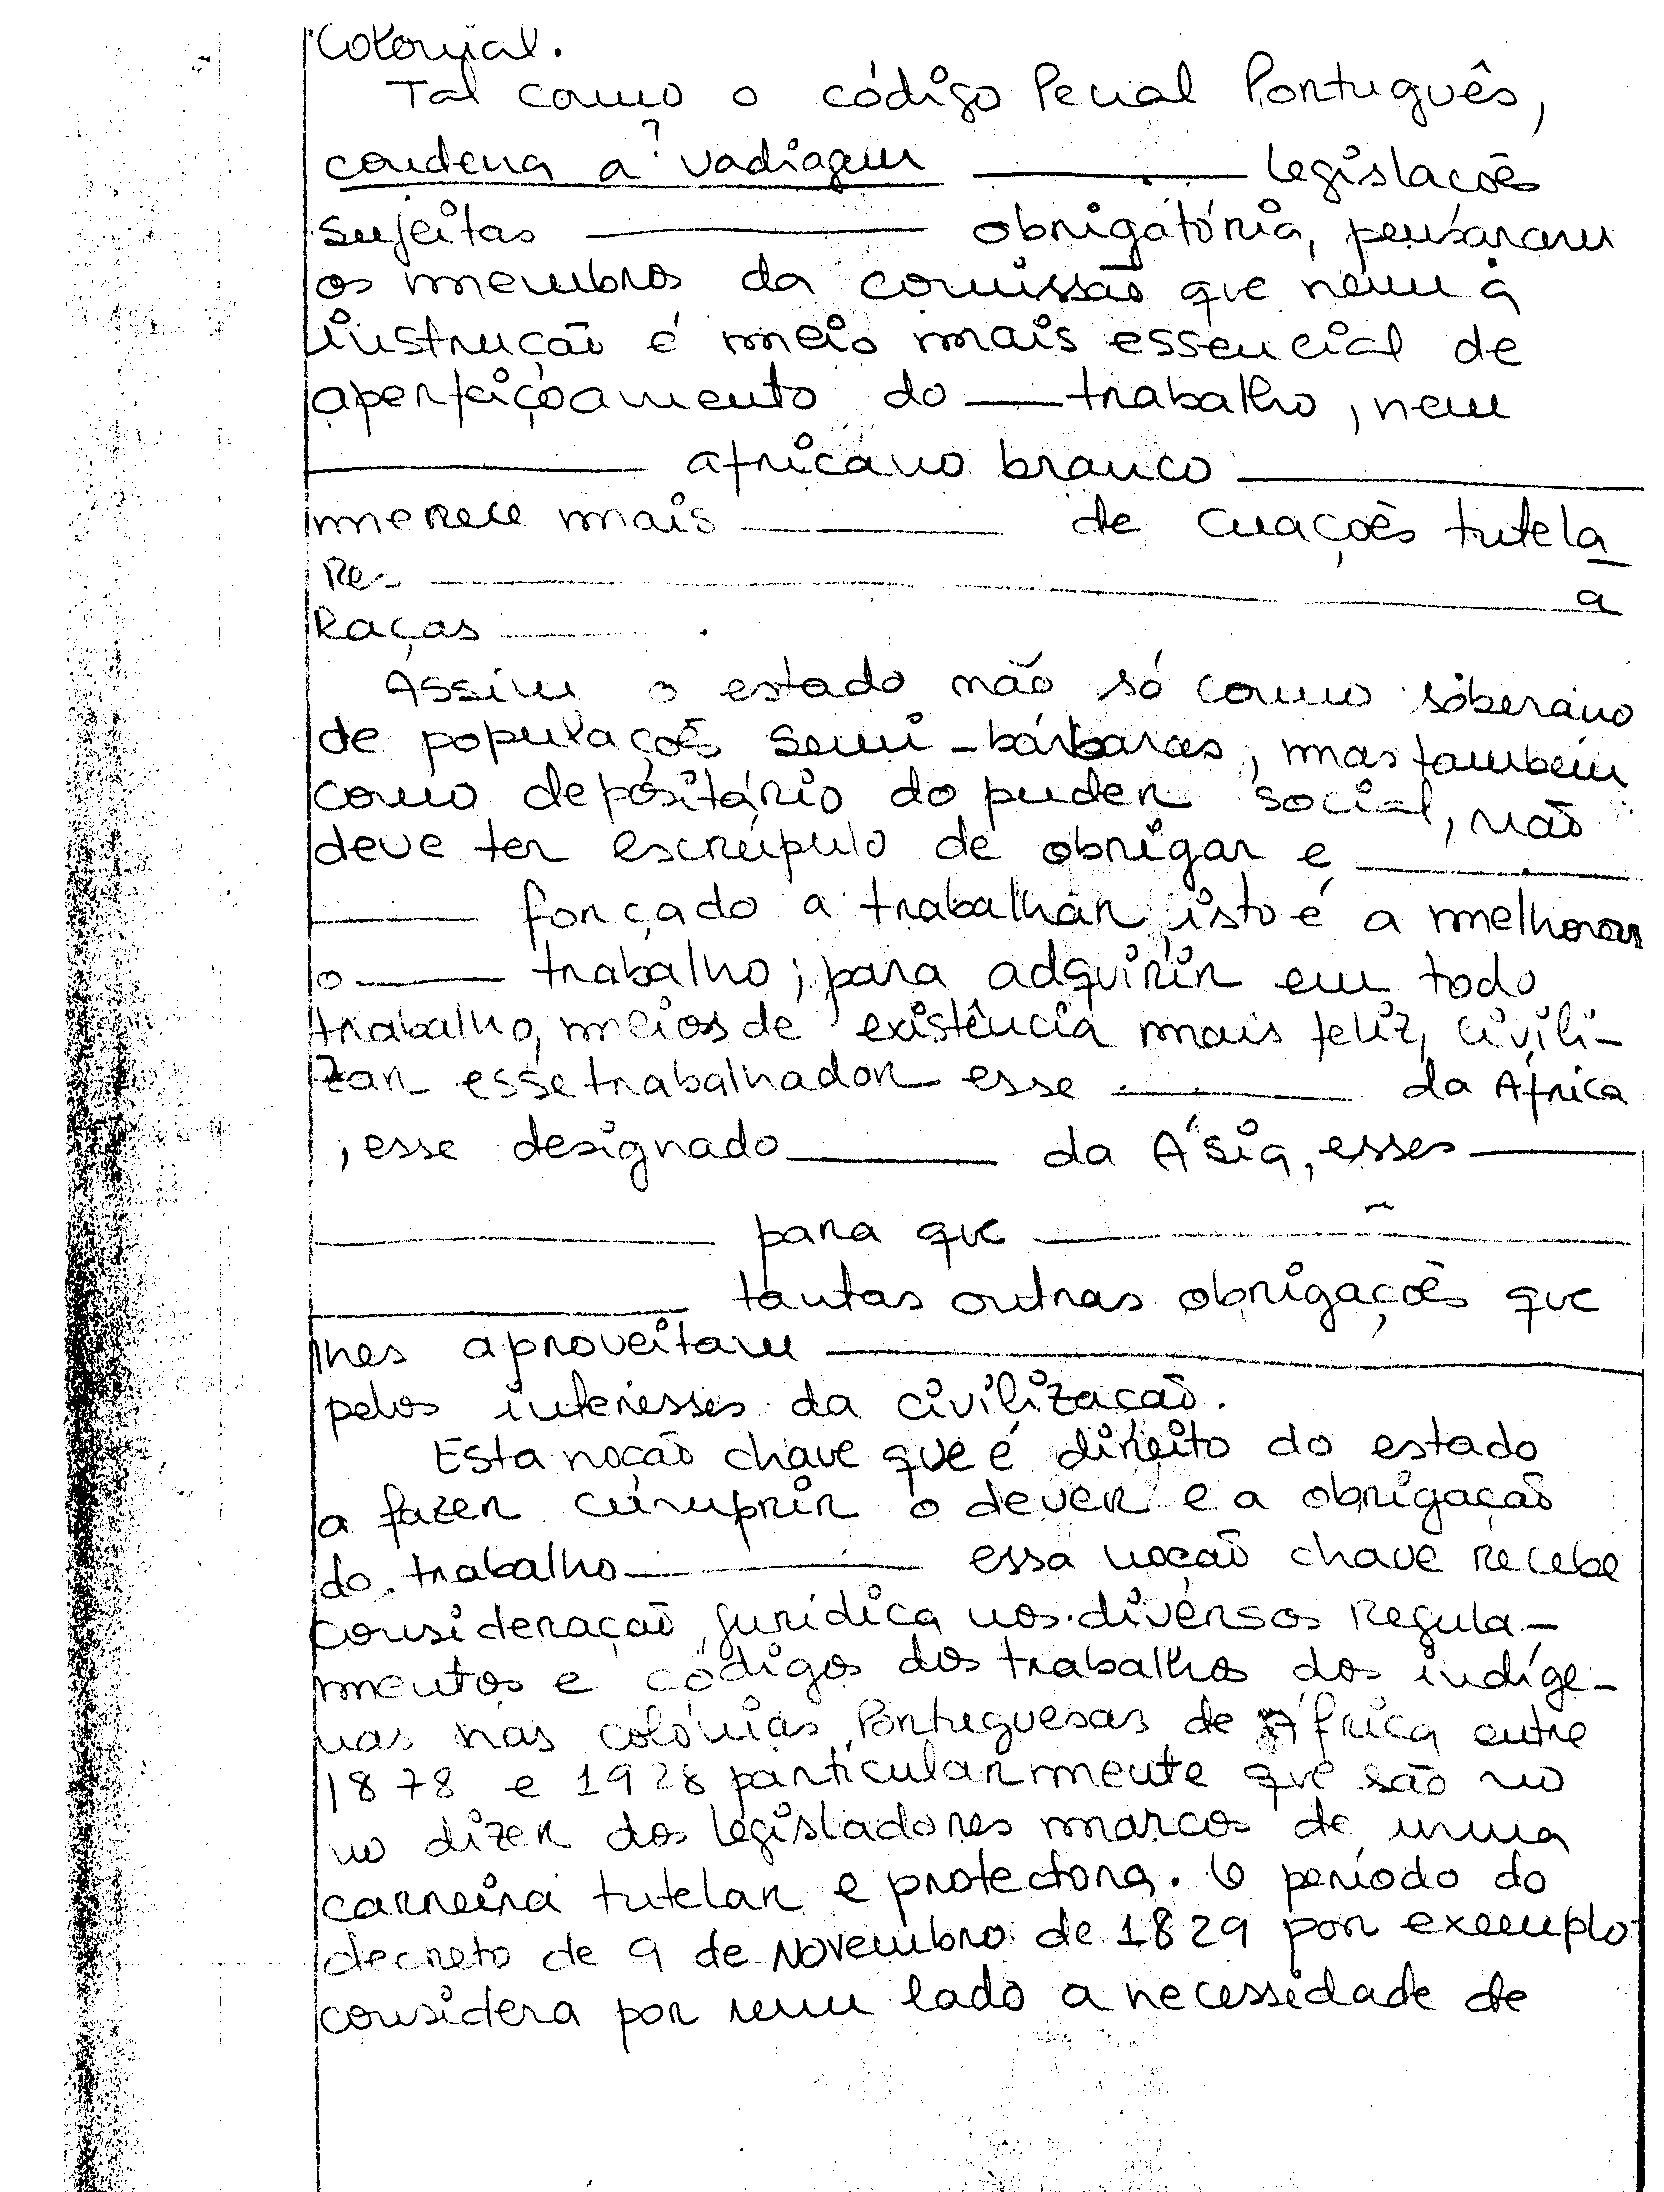 Colonial.
Tal como o código Penal Português,
condena a ? vadiagem ______ legislações
sujeitas ______ obrigatória, pensaram
os membros da comissão que nem a
instrução é meio mais essencial de
aperfeiçoamento do ___ trabalho, nem
______ africano branco ______
merece mais ______ de cuações tutela
Re- ______ a
Raças ______.
Assim o estado não só como soberano
de populações semi-bárbaras, mas também
como depositário do puder social, não
deve ter escrúpulo de obrigar e ______
______ forçado a trabalhar isto é a melhorar
o ______ trabalho; para adquirir em todo
trabalho, meios de existência mais feliz, civili-
zar esse trabalhador esse ______ da África
, esse designado ______ da Ásia, esses ______
______ para que ______
______ tantas outras obrigações que
lhes aproveitam ______
pelos interesses da civilização.
Esta noção chave que é direito do estado
a fazer cumprir o dever e a obrigação
do trabalho ______ essa noção chave recebe
consideração jurídica nos diversos regula-
mentos e códigos dos trabalhos dos indíge-
nas nas colónias Portuguesas de África entre
1878 e 1928 particularmente que são no
no dizer dos legisladores marcos de uma
carreira tutelar e protectora. O período do
decreto de 9 de Novembro de 1829 por exemplo
considera por um lado a necessidade de